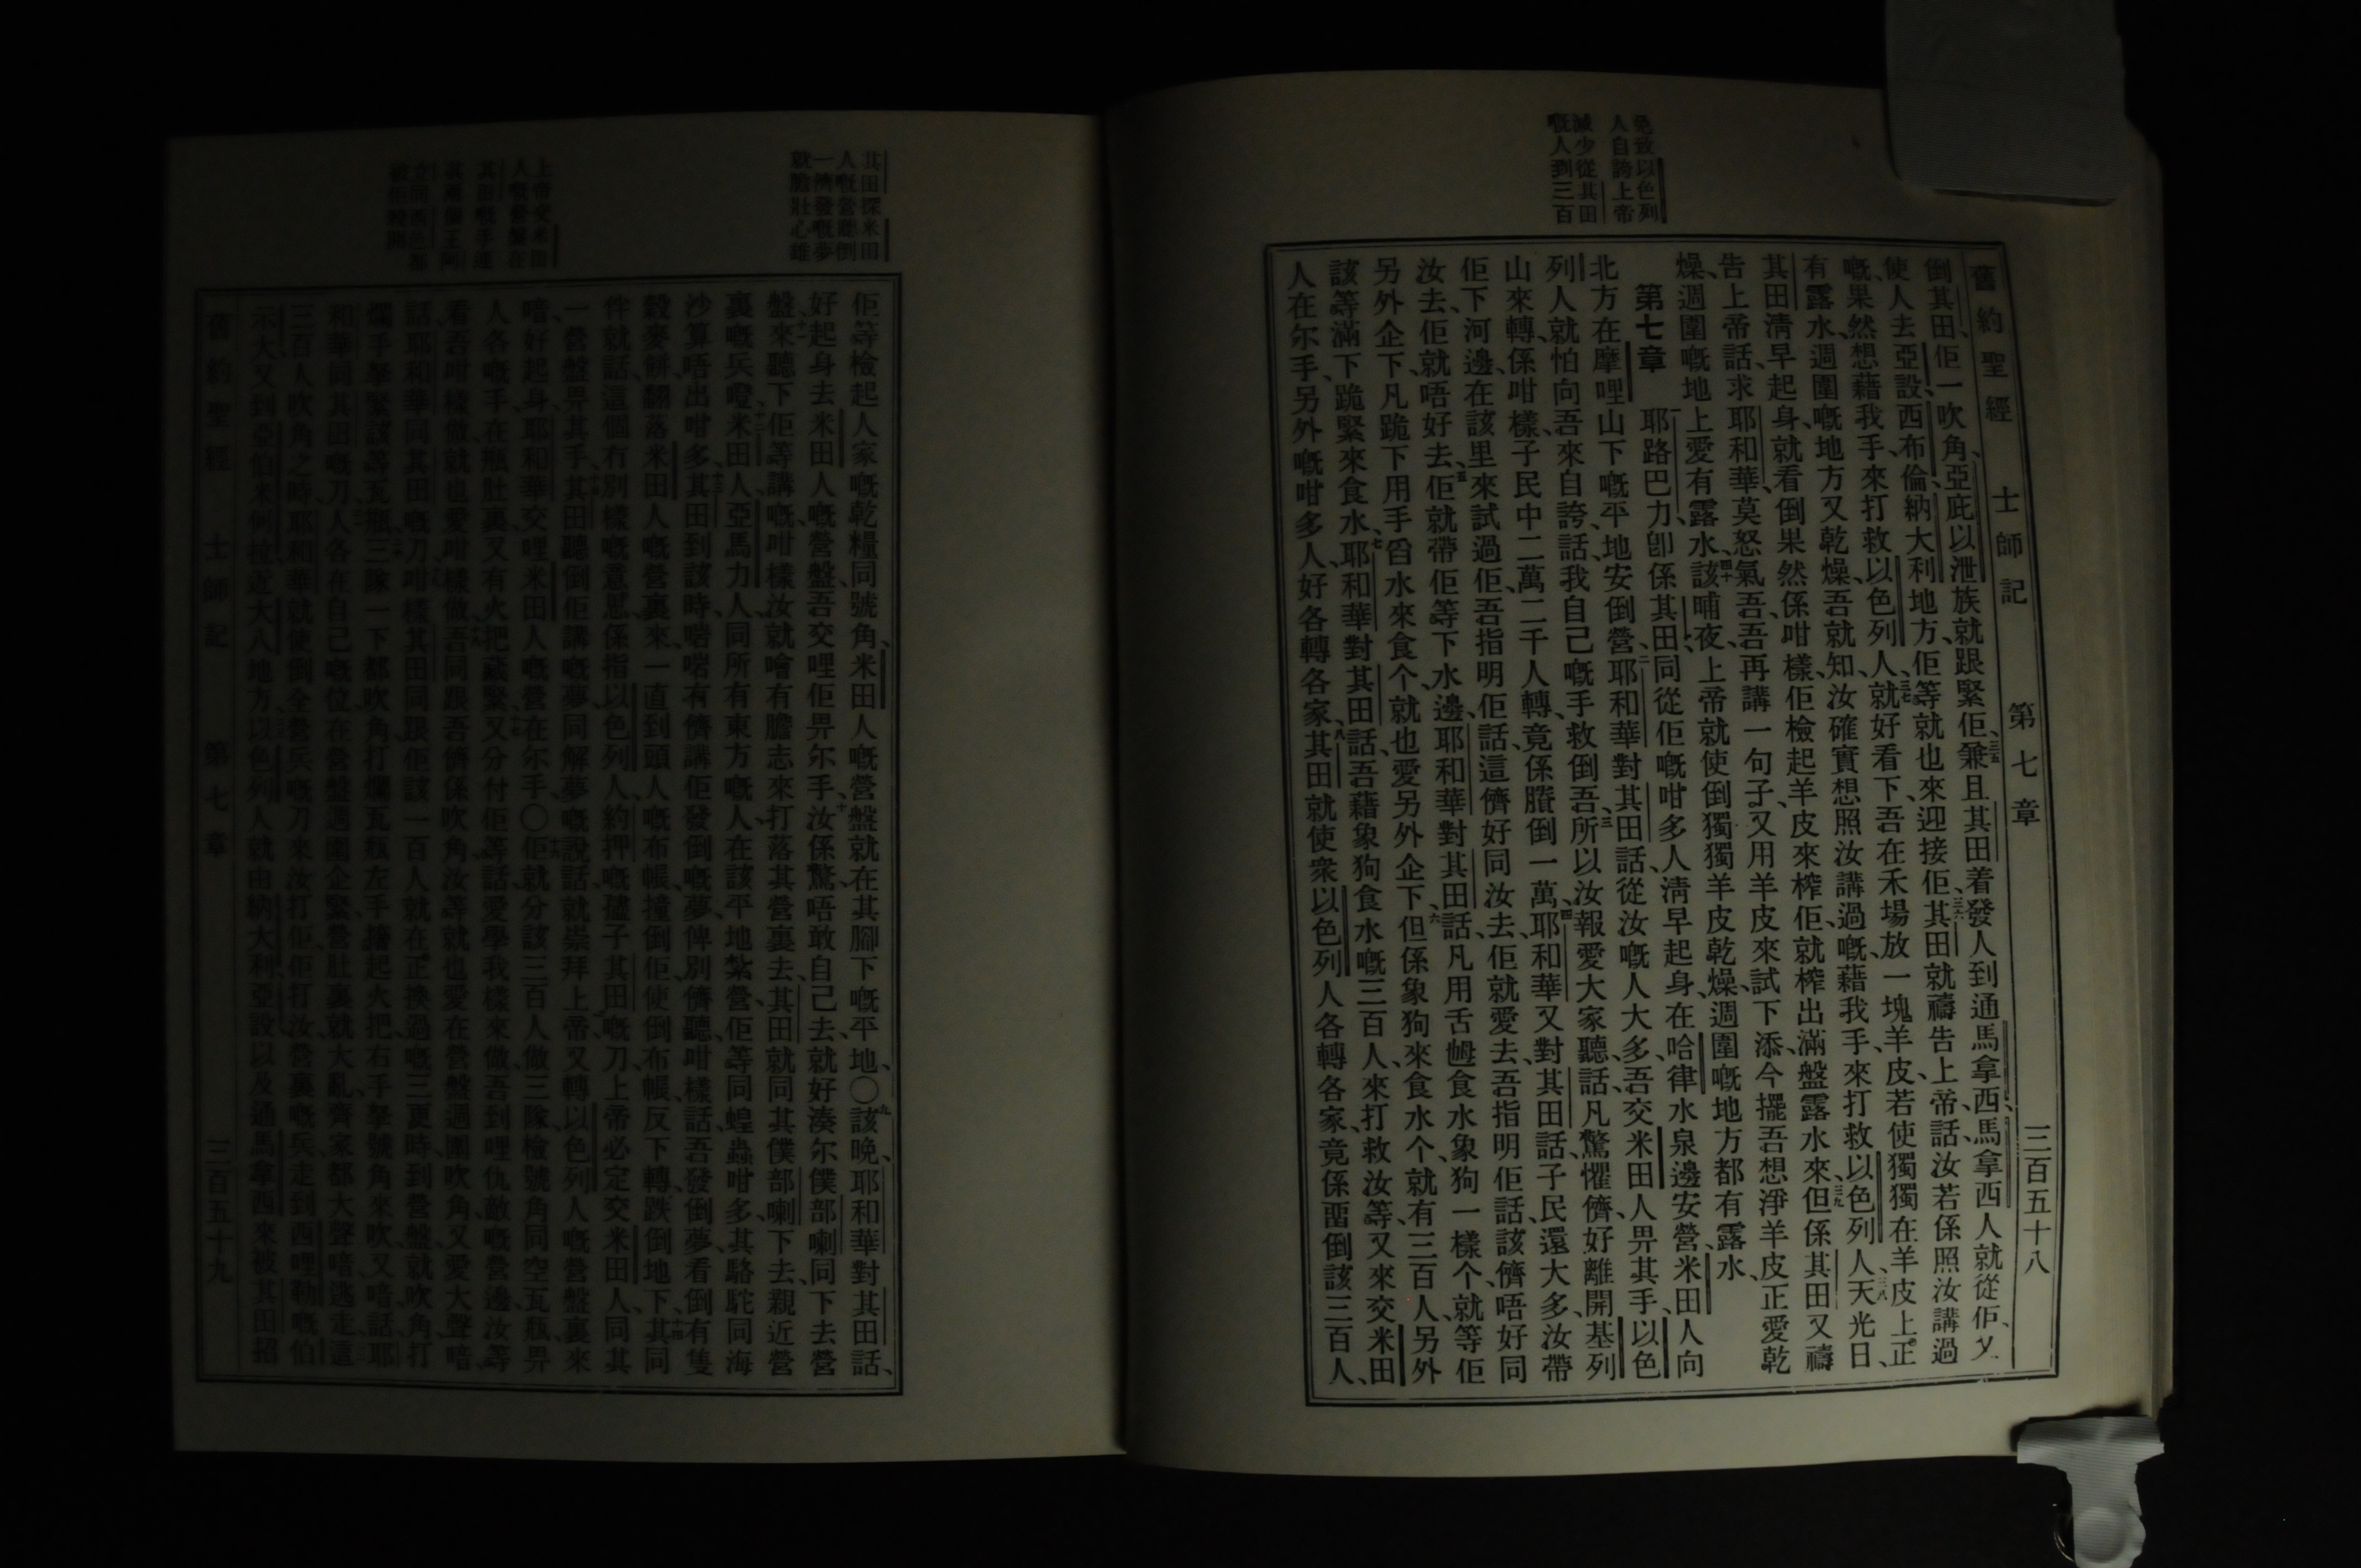 舊約聖經 士師記 第七章 三百五十八
免致以色列
人自誇上帝
減少從其田
嘅人到三百
倒其田、佢一吹角、亞庇以泄族就跟緊佢、三五兼且其田着發人到通馬拿西、馬拿西人就從佢、又
使人去亞設、西布倫、納大利地方、佢等就也來迎接佢、三六其田就禱告上帝、話、汝若係照汝講過
嘅、果然想藉我手、來打救以色列人、三七就好看下、吾在禾場放一塊羊皮、若使獨獨在羊皮上、正
有露水、週圍嘅地方又乾燥、吾就知、汝確實想照汝講過嘅、藉我手、來打救以色列人、三八天光日、
其田清早起身、就看倒果然係咁樣、佢檢起羊皮來榨佢、就榨出滿盤露水來、三九但係其田又禱
告上帝話、求耶和華莫怒氣吾、吾再講一句子、又用羊皮來試下添、今擺吾想淨羊皮正愛乾
燥、週圍嘅地上愛有露水、四十該晡夜、上帝就使倒獨獨羊皮乾燥、週圍嘅地方都有露水、
第七章 一耶路巴力、卽係其田、同從佢嘅咁多人、清早起身、在哈律水泉邊安營、米田人向
北方在摩哩山下嘅平地安倒營、二耶和華對其田話、從汝嘅人大多、吾交米田人畀其手、以色
列人就怕向吾來自誇、話、我自己嘅手救倒吾、三所以汝報愛大家聽、話、凡驚懼儕、好離開基列
山來轉、係咁樣、子民中二萬二千人轉、竟係賸倒一萬、四耶和華又對其田話、子民還大多、汝帶
佢下河邊、在該里來試過佢、吾指明佢話、這儕好同汝去、佢就愛去、吾指明佢話、該儕唔好同
汝去、佢就唔好去、五佢就帶佢等下水邊、耶和華對其田話、凡用舌乸食水、象狗一樣个、就等佢
另外企下、凡跪下用手舀水來食个、就也愛另外企下、六但係象狗來食水个、就有三百人、另外
該等滿下跪緊來食水、七耶和華對其田話、吾藉象狗食水嘅三百人、來打救汝等、又來交米田
人在尔手、另外嘅咁多人、好各轉各家、八其田就使衆以色列人各轉各家、竟係留倒該三百人、
其田探米田
人嘅營聽倒
一儕發嘅夢
就膽壯心雄
上帝交米田
人嘅營盤在
其田嘅手
佢等檢起人家嘅乾糧同號角、米田人嘅營盤就在其腳下嘅平地、〇九該晚、耶和華對其田話、
好起身去米田人嘅營盤、吾交哩佢畀尔手、十汝係驚唔敢自己去、就好湊尔僕部喇同下去營
盤、十一來聽下佢等講嘅、咁樣汝就噲有膽志來打落其營裏去、其田就同其僕部喇下去、親近營
裏嘅兵、十二米田人、亞馬力人、同所有東方嘅人、在該平地紮營、佢等同蝗蟲咁多、其駱駝同海
沙算唔出咁多、十三其田到該時、啱啱有儕講佢發倒嘅夢、俾別儕聽、咁樣話、吾發倒夢、看倒有隻
穀麥餅翻落米田人嘅營裏來、一直到頭人嘅布帳、撞倒佢、使倒布帳反下轉、跌倒地下、十四其同
伴就話、這個冇別樣嘅意思、係指以色列人約押嘅孻子其田嘅刀、上帝必定交米田人、同其
一營盤畀其手、十五其田聽倒佢講嘅夢、同解夢嘅說話、就崇拜上帝、又轉以色列人嘅營盤裏來
喑、好起身、耶和華交哩米田人嘅營在尔手、〇十六佢就分該三百人做三隊、檢號角、同空瓦瓶、畀
人各嘅手、在瓶肚裏又有火把藏緊、十七又分付佢等話、愛學我樣來做、吾到哩仇敵嘅營邊、汝等
看吾咁樣做、就也愛咁樣做、十八吾同跟吾儕係吹角、汝等就也愛在營盤週圍吹角、又愛大聲喑
話、耶和華同其田嘅刀、十九咁樣其田同跟佢該一百人、就在正換過嘅三更時、到營盤、就吹角、打
爛手拏緊該等瓦瓶、二十三隊一下都吹角、打爛瓦瓶、左手擔起火把、右手拏號角來吹、又喑話、耶
和華同其田嘅刀、二一人各在自己嘅位、在營盤週圍企緊、營肚裏就大亂、齊家都大聲喑、逃走、二二這
三百人吹角之時、耶和華就使倒全營兵嘅刀、來汝打佢、佢打汝、營裏嘅兵、走到西哩勒嘅伯
示大、又到亞伯米何拉近大八地方、二三以色列人就由納大利、亞設、以及通馬拿西來、被其田招
舊約聖經 士師記 第七章 三百五十九